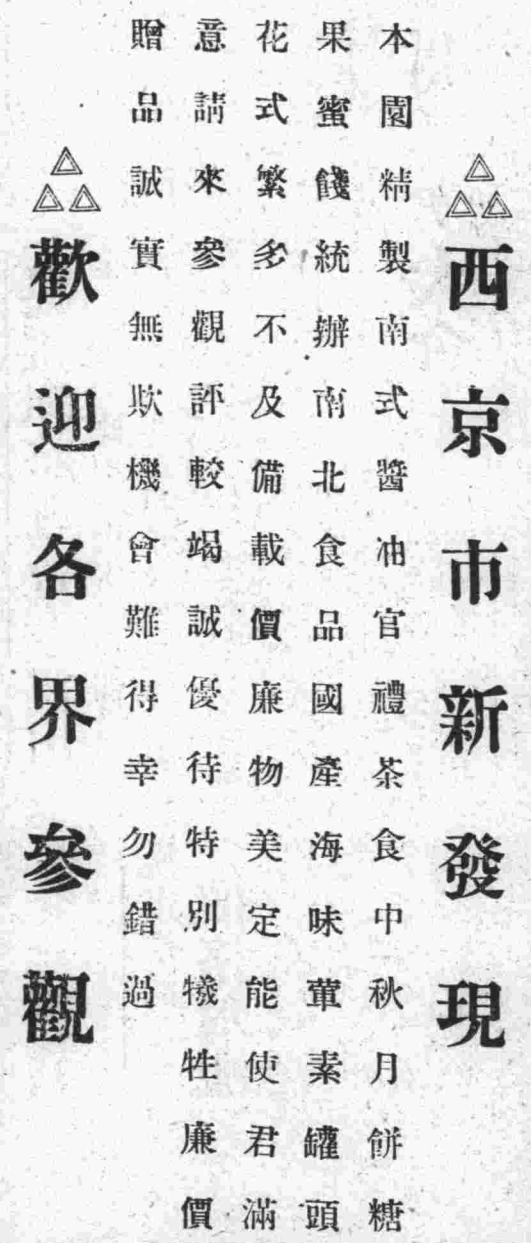 西京市新發現
本園精製南式醬油官禮茶食中秋月餅糖
果蜜餞統辦南北食品國產海味葷素罐頭
花式繁多不及備載價廉物美定能使君滿
意請來參觀評較竭誠優待特別犧牲廉價
贈品誠實無欺機會難得幸勿錯過
歡迎各界參觀